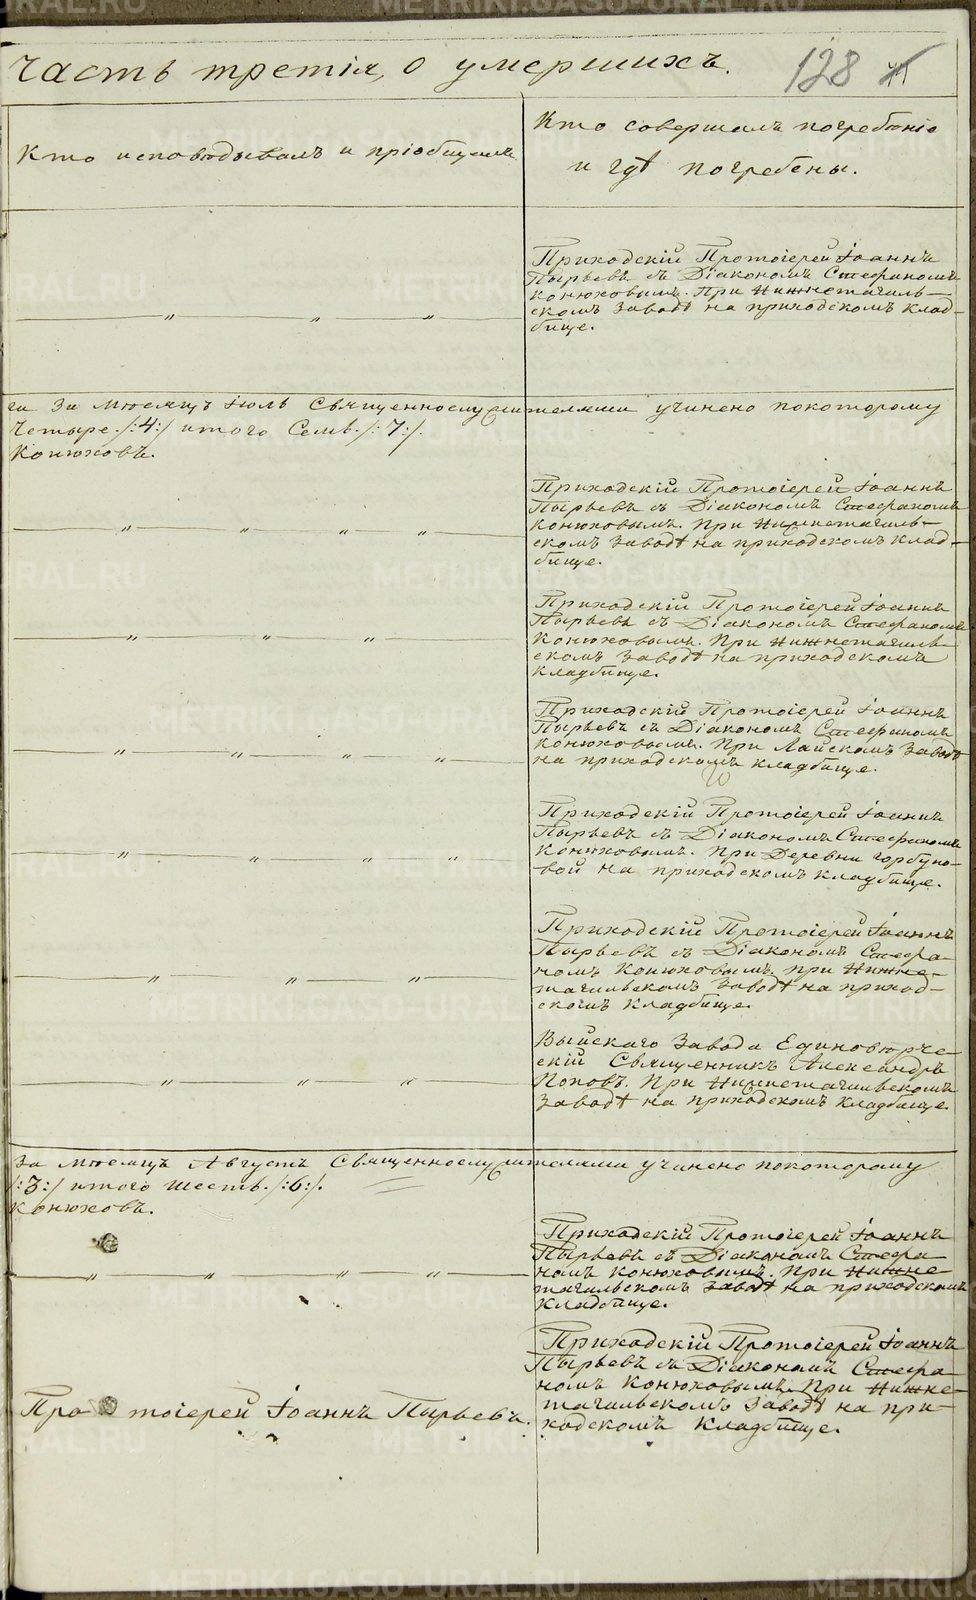 Часть третія, о умершихъ.
128
Кто исповѣдывалъ и пріобщалъ
Кто совершалъ погребеніе
и гдѣ погребены.
Приходскій Протоіерей Іоаннъ
Пырьевъ съ Діакономъ Стефаномъ
Конюховымъ. При Нижнетагиль-
скомъ заводѣ на приходскомъ клад-
бище.
за Мѣсяцъ Іюль Священнослужителями учинено покоторому
Четыре /:4:/ итого Семь /:7:/.
Конюховъ.
Приходскій Протоіерей Іоаннъ
Пырьевъ съ Діакономъ Стефаномъ
Конюховымъ. При Нижнетагиль-
скомъ Заводѣ на приходскомъ клад-
бище.
Приходскій Протоіерей Іоаннъ
Пырьевъ съ Діакономъ Стефаномъ
Конюховымъ. При Нижнетагиль-
скомъ Заводѣ на приходскомъ
кладбище.
Приходскій Протоіерей Іоаннъ
Пырьевъ съ Діакономъ Стефаномъ
Конюховымъ. При Лайскомъ Заводѣ
на приходскомъ кладбище.
Приходскій Протоіерей Іоаннъ
Пырьевъ съ Діакономъ Стефаномъ
Конюховымъ. При Деревни Горбуно-
вой на приходскомъ кладбище.
Приходскій Протоіерей Іоаннъ
Пырьевъ съ Діакономъ Стефа-
номъ Конюховымъ. при Нижне-
тагильскомъ Заводѣ на приход-
скомъ кладбище.
Выйскаго Завода Единовѣрче-
скій Священникъ Александръ
Поповъ. При Нижнетагильскомъ
Заводѣ на приходскомъ кладбище.
За Мѣсяцъ Августъ Священнослужителями учинено покоторому
/:3:/ итого шесть. /:6:/.
Конюховъ.
Приходскій Протоіерей Іоаннъ
Пырьевъ съ Діакономъ Стефа-
номъ Конюховымъ. При Нижне-
тагильскомъ Заводѣ на приходскомъ
кладбище.
Приходскій Протоіерей Іоаннъ
Пырьевъ съ Діакономъ Стефа-
номъ Конюховымъ. При Нижне-
тагильскомъ Заводѣ на при-
ходскомъ кладбище.
Протоіерей Іоаннъ Пырьевъ.
METRIKI.GASO-URAL.RU